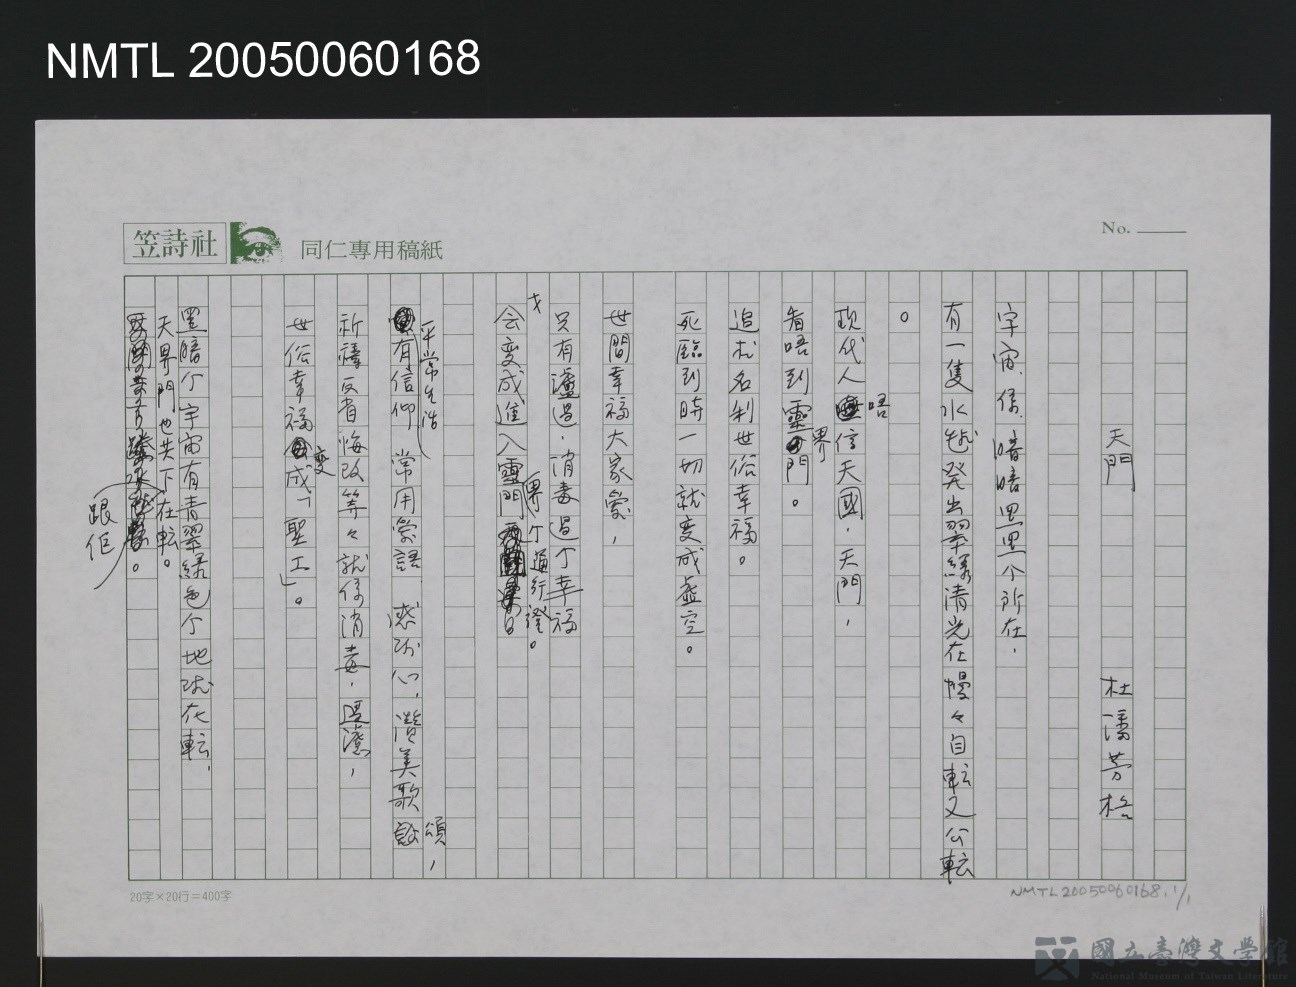 NMTL 20050060168
笠詩社 同仁專用稿紙
No.
天門 杜潘芳格
宇宙係暗暗黑黑个所在,
有一隻水蛙発出翠綠清光在慢々自転又公転
。
現代人唔信天國,天門,
看唔到靈界門。
追求名利世俗幸福。
死臨到時一切就変成虛空。
世間幸福大家愛,
只有濾過,消毒過个幸福
才会変成進入靈界門个通行證。
平常生活
有信仰 常用愛語 感功心,讚美歌頌,
祈禱反省悔改等々就係消毒,過濾,
世俗幸福変成「聖工」。
黑暗个宇宙有青翠綠色个地球在転,
天界門也共下在転。
跟佢
20字×20行=400字
NMTL20050060168,1/1
國立臺灣文學館
National Museum of Taiwan Literature